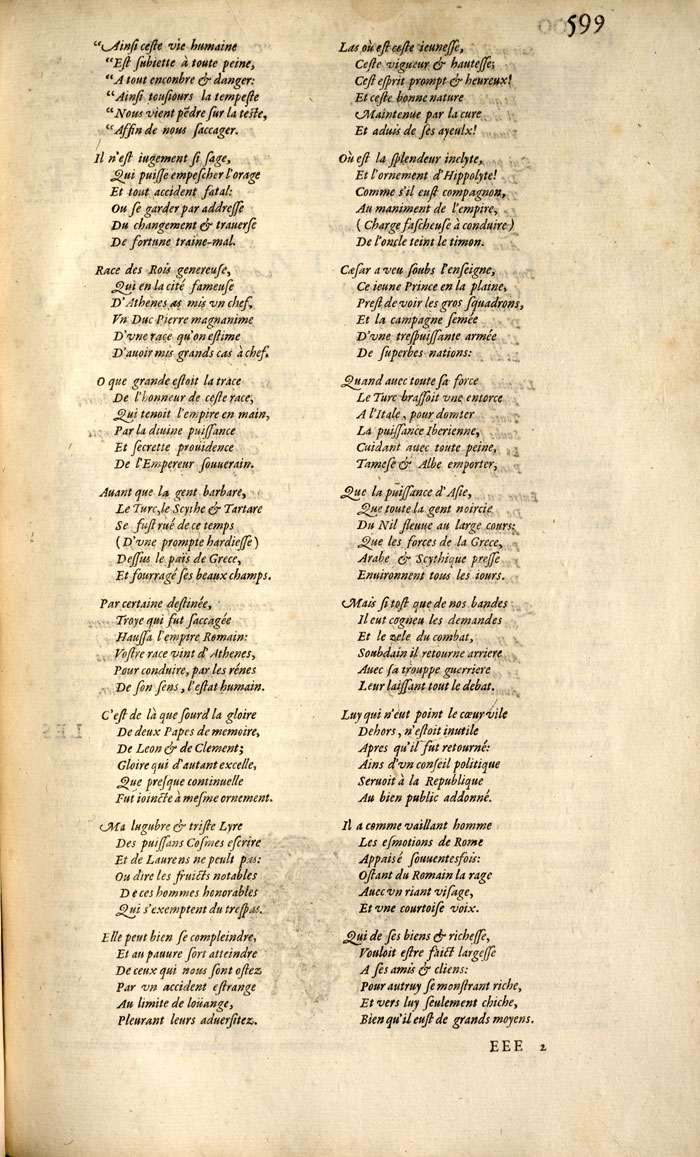 599
“Ainſi ceſte vie humaine
“Eſt ſubiette à toute peine,
“A tout enconbre & danger:
“Ainſi touſiours la tempeſte
“Nous vient pẽdre ſur la teſte,
“Affin de nous ſaccager.
Il n'eſt iugement ſi ſage,
Qui puiſſe empeſcher l'orage
Et tout accident fatal:
Ou ſe garder par addreſſe
Du changement & trauerſe
De fortune traine-mal.
Race des Rois genereuſe,
Qui en la cité fameuſe
D'Athenes as mis vn chef,
Vn Duc Pierre magnanime
D'vne race qu'on eſtime
D'auoir mis grands cas à chef.
O que grande eſtoit la trace
De l'honneur de ceſte race,
Qui tenoit l'empire en main,
Par la diuine puiſſance
Et ſecrette prouidence
De l'Empereur ſouuerain.
Auant que la gent barbare,
Le Turc, le Scythe & Tartare
Se fuſt rué de ce temps
(D'vne prompte hardieſſe)
Deſſus le païs de Grece,
Et fourragé ſes beaux champs.
Par certaine deſtinée,
Troye qui fut ſaccagée
Hauſſa l'empire Romain:
Voſtre race vint d'Athenes,
Pour conduire, par les rénes
De ſon ſens, l'eſtat humain.
C'eſt de là que ſourd la gloire
De deux Papes de memoire,
De Leon & de Clement;
Gloire qui d'autant excelle,
Que preſque continuelle
Fut ioincte à meſme ornement.
Ma lugubre & triſte Lyre
Des puiſſans Coſmes eſcrire
Et de Laurens ne peult pas:
Ou dire les fruicts notables
De ces hommes honorables
Qui s'exemptent du treſpas.
Elle peut bien ſe compleindre,
Et au pauure ſort atteindre
De ceux qui nous ſont oſtez
Par vn accident eſtrange
Au limite de loüange,
Pleurant leurs aduerſitez.
Las où eſt ceſte ieuneſſe,
Ceſte vigueur & hauteſſe,
Ceſt eſprit prompt & heureux!
Et ceſte bonne nature
Maintenue par la cure
Et aduis de ſes ayeulx!
Où eſt la ſplendeur inclyte,
Et l'ornement d'Hippolyte!
Comme s'il euſt compagnon,
Au maniment de l'empire,
(Charge faſcheuſe à conduire)
De l'oncle teint le timon.
Cæſar a veu ſoubs l'enſeigne,
Ce ieune Prince en la plaine,
Preſt de voir les gros ſquadrons,
Et la campagne ſemée
D'vne treſpuiſſante armée
De ſuperbes nations:
Quand auec toute ſa force
Le Turc braſſoit vne entorce
A l'Itale, pour domter
La puiſſance Iberienne,
Cuidant auec toute peine,
Tameſe & Albe emporter,
Que la puiſſance d'Aſie,
Que toute la gent noircie
Du Nil fleuue au large cours:
Que les forces de la Grece,
Arabe & Scythique preſſe
Enuironnent tous les iours.
Mais ſi toſt que de nos bandes
Il eut cogneu les demandes
Et le zele du combat,
Soubdain il retourne arriere
Auec ſa trouppe guerriere
Leur laiſſant tout le debat.
Luy qui n'eut point le cœur vile
Dehors, n'eſtoit inutile
Apres qu'il fut retourné:
Ains d'vn conſeil politique
Seruoit à la Republique
Au bien public addonné.
Il a comme vaillant homme
Les eſmotions de Rome
Appaiſé ſouuentesfois:
Oſtant du Romain la rage
Auec vn riant viſage,
Et vne courtoiſe voix.
Qui de ſes biens & richeſſe,
Vouloit eſtre faict largeſſe
A ſes amis & cliens:
Pour autruy ſe monſtrant riche,
Et vers luy ſeulement chiche,
Bien qu'il euſt de grands moyens.
EEE 2